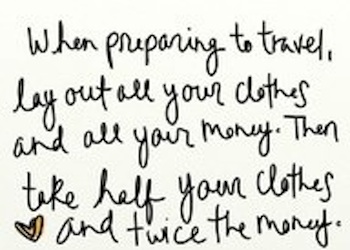 When preparing to travel,
lay out all your clothes
and all your money. Then
take half your clothes
and twice the money.